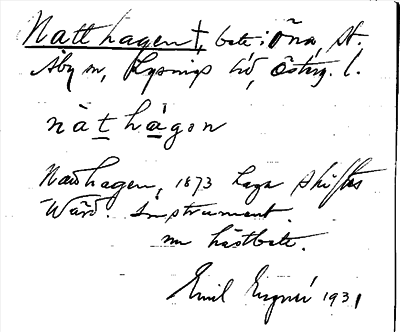 Natthagen †, bete: Öna, St.
Åby sn, Lysings hd, Östg. l.
nàt hàgon
Natthagen, 1873 Laga Skiftes
Värd. Instrument.
nu hästbete.
Emil 1931